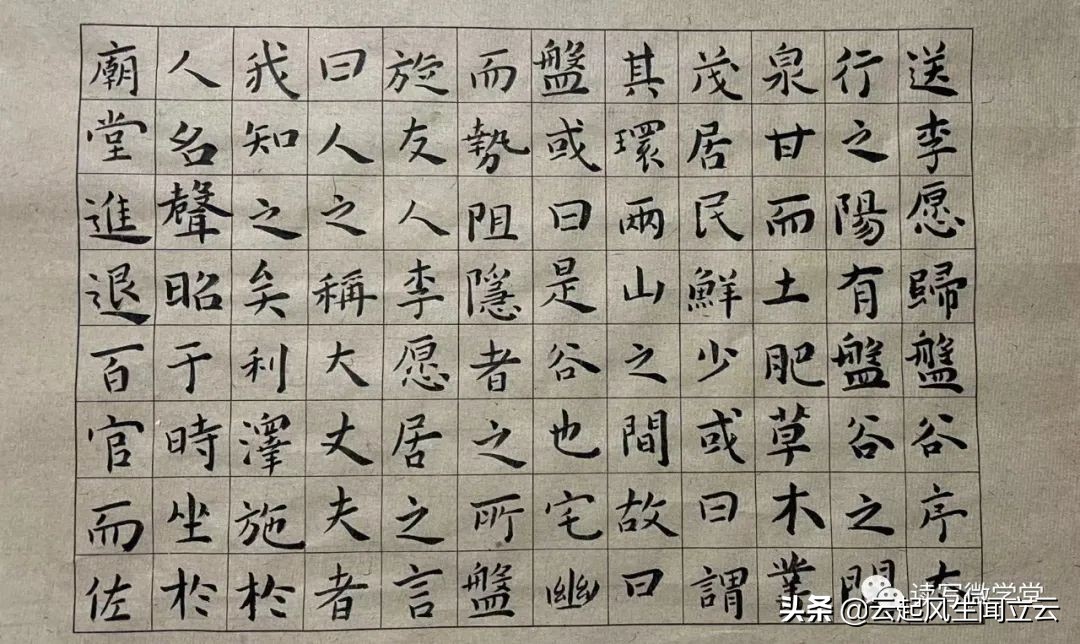 送李愿歸盤谷序
行之陽有盤谷盤谷之間
泉甘而土肥草木叢
茂居民鮮少或曰謂
其環兩山之間故曰
盤或曰是谷也宅幽
而勢阻隱者之所盤
旋友人李愿居之言
曰人之稱大丈夫者
我知之矣利澤施於
人名聲昭于時坐於
廟堂進退百官而佐
读写微学堂
头条 @云起风生闻立云